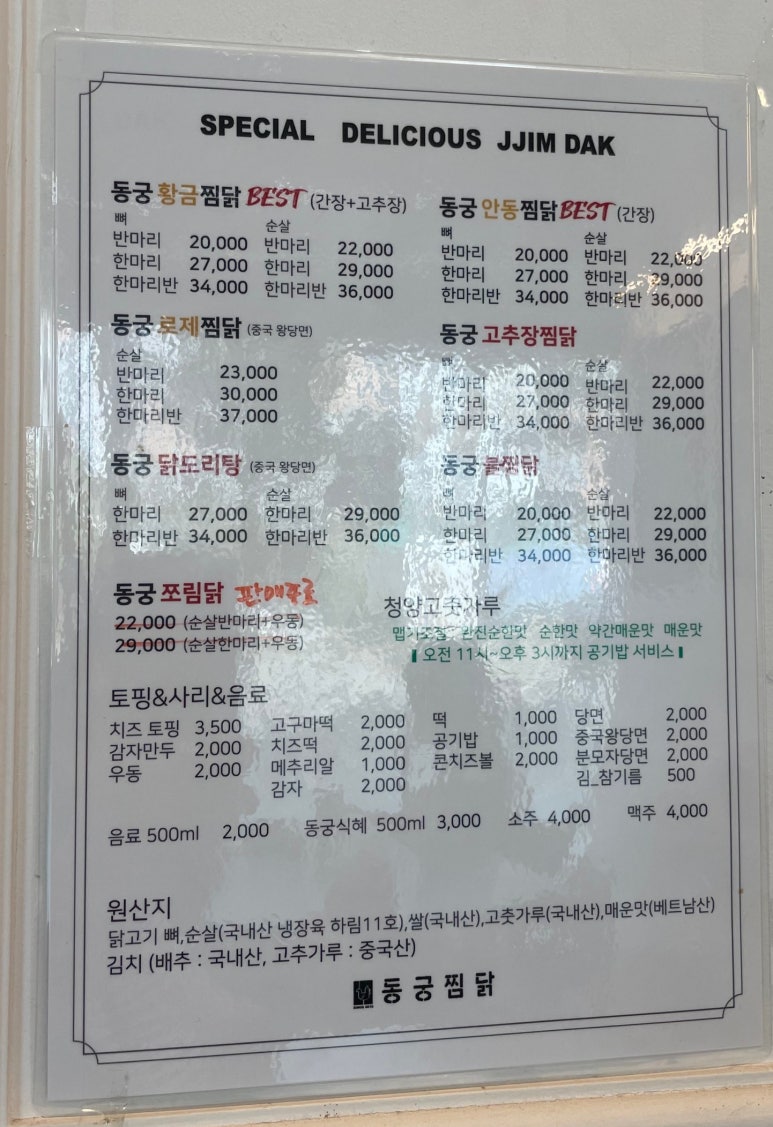 SPECIAL DELICIOUS JJIM DAK
동궁 황금찜닭 BEST (간장+고추장)
뼈 순살
반마리 20,000 반마리 22,000
한마리 27,000 한마리 29,000
한마리반 34,000 한마리반 36,000
동궁 안동찜닭 BEST (간장)
뼈 순살
반마리 20,000 반마리 22,000
한마리 27,000 한마리 29,000
한마리반 34,000 한마리반 36,000
동궁 로제찜닭 (중국 왕당면)
순살
반마리 23,000
한마리 30,000
한마리반 37,000
동궁 고추장찜닭
뼈 순살
반마리 20,000 반마리 22,000
한마리 27,000 한마리 29,000
한마리반 34,000 한마리반 36,000
동궁 닭도리탕 (중국 왕당면)
뼈 순살
한마리 27,000 한마리 29,000
한마리반 34,000 한마리반 36,000
동궁 불찜닭
뼈 순살
반마리 20,000 반마리 22,000
한마리 27,000 한마리 29,000
한마리반 34,000 한마리반 36,000
동궁 쪼림닭 판매종료
22,000 (순살반마리+우동)
29,000 (순살한마리+우동)
청양고춧가루
맵기조절 완전순한맛 순한맛 약간매운맛 매운맛
오전 11시~오후 3시까지 공기밥 서비스
토핑&사리&음료
치즈 토핑 3,500 고구마떡 2,000 떡 1,000 당면 2,000
감자만두 2,000 치즈떡 2,000 공기밥 1,000 중국왕당면 2,000
우동 2,000 메추리알 1,000 콘치즈볼 2,000 분모자당면 2,000
감자 2,000 김_참기름 500
음료 500ml 2,000 동궁식혜 500ml 3,000 소주 4,000 맥주 4,000
원산지
닭고기 뼈,순살(국내산 냉장육 하림11호),쌀(국내산),고춧가루(국내산),매운맛(베트남산)
김치 (배추 : 국내산, 고추가루 : 중국산)
동궁찜닭